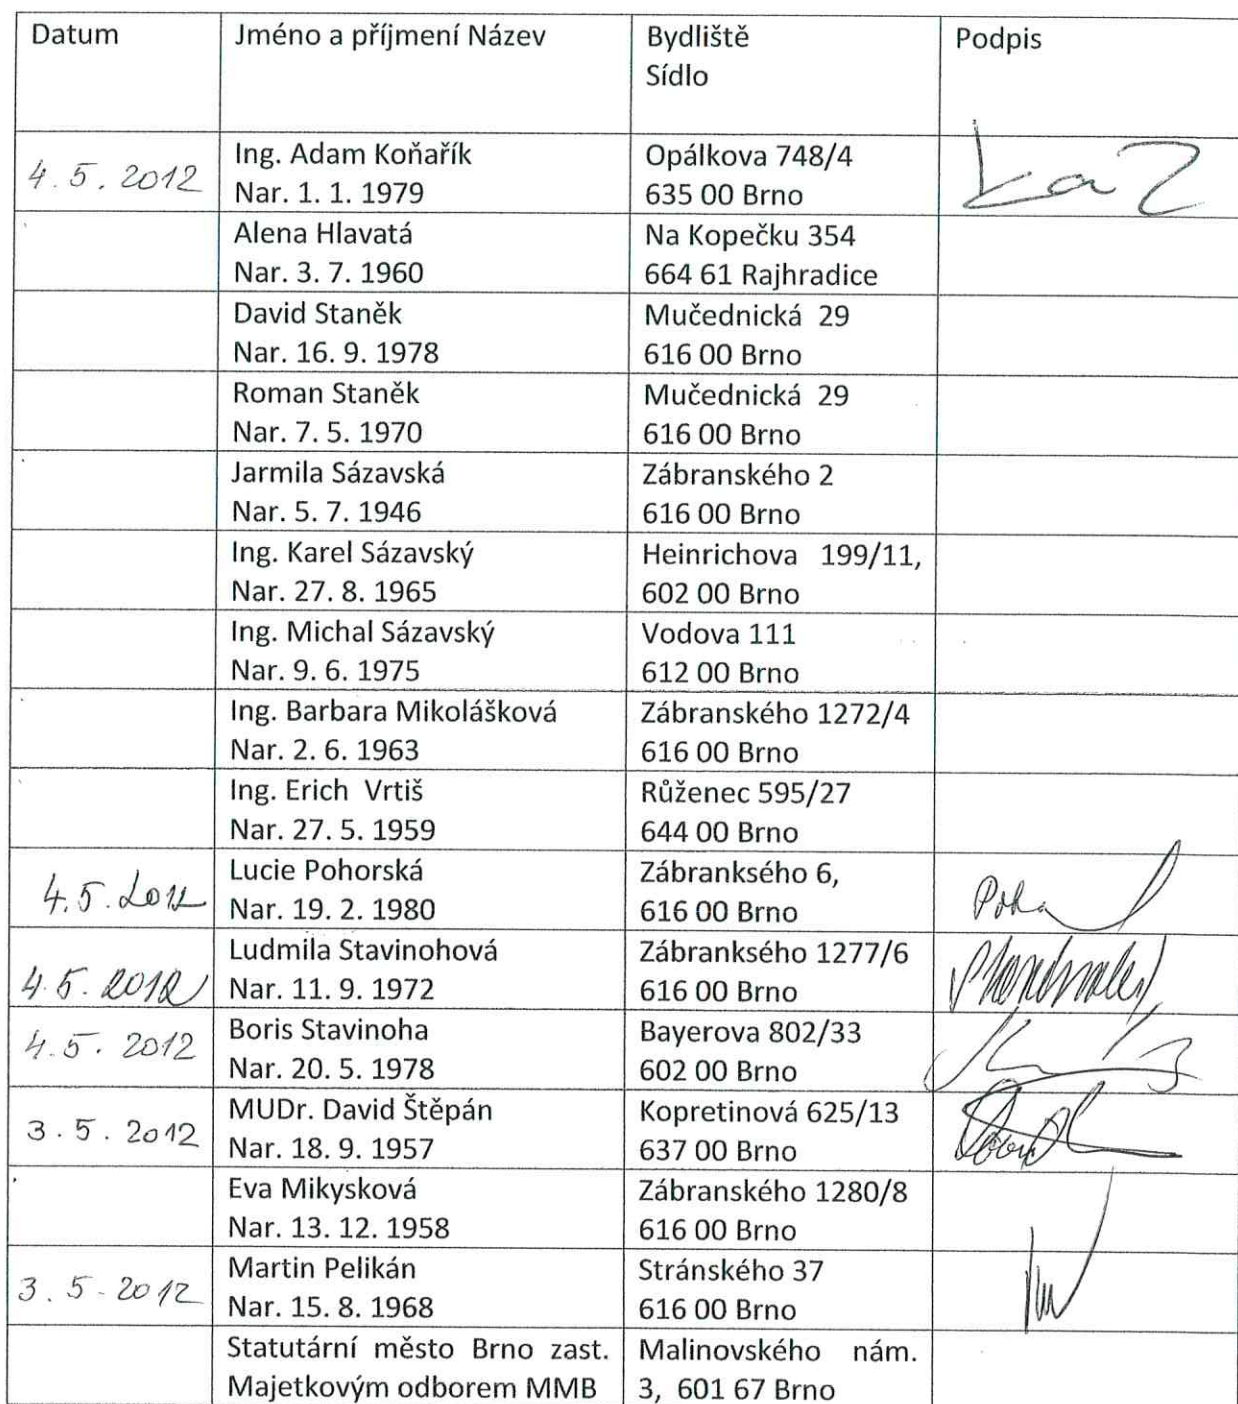 Datum
Jméno a příjmení Název
Bydliště
Sídlo
Podpis
4. 5. 2012
Ing. Adam Koňařík
Nar. 1. 1. 1979
Opálkova 748/4
635 00 Brno
Alena Hlavatá
Nar. 3. 7. 1960
Na Kopečku 354
664 61 Rajhradice
David Staněk
Nar. 16. 9. 1978
Mučednická 29
616 00 Brno
Roman Staněk
Nar. 7. 5. 1970
Mučednická 29
616 00 Brno
Jarmila Sázavská
Nar. 5. 7. 1946
Zábranského 2
616 00 Brno
Ing. Karel Sázavský
Nar. 27. 8. 1965
Heinrichova 199/11,
602 00 Brno
Ing. Michal Sázavský
Nar. 9. 6. 1975
Vodova 111
612 00 Brno
Ing. Barbara Mikolášková
Nar. 2. 6. 1963
Zábranského 1272/4
616 00 Brno
Ing. Erich Vrtiš
Nar. 27. 5. 1959
Růženec 595/27
644 00 Brno
4. 5. 2012
Lucie Pohorská
Nar. 19. 2. 1980
Zábranksého 6,
616 00 Brno
4. 5. 2012
Ludmila Stavinohová
Nar. 11. 9. 1972
Zábranksého 1277/6
616 00 Brno
4. 5. 2012
Boris Stavinoha
Nar. 20. 5. 1978
Bayerova 802/33
602 00 Brno
3. 5. 2012
MUDr. David Štěpán
Nar. 18. 9. 1957
Kopretinová 625/13
637 00 Brno
Eva Mikysková
Nar. 13. 12. 1958
Zábranského 1280/8
616 00 Brno
3. 5 - 2012
Martin Pelikán
Nar. 15. 8. 1968
Stránského 37
616 00 Brno
Statutární město Brno zast.
Majetkovým odborem MMB
Malinovského nám.
3, 601 67 Brno